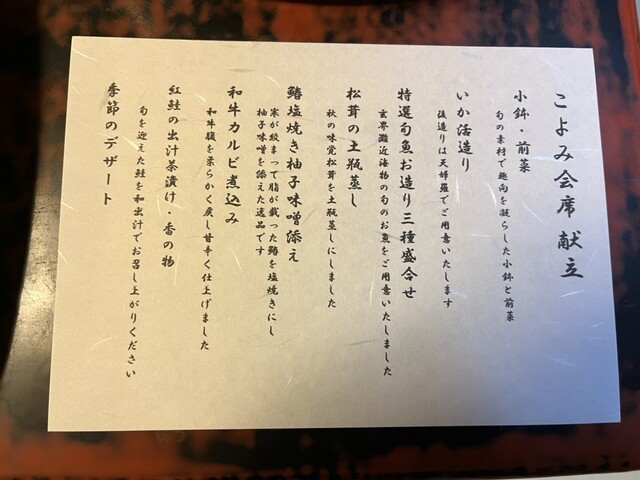 こよみ会席 献立
小鉢・前菜
旬の素材で趣向を凝らした小鉢と前菜
いか活造り
後造りは天婦羅でご用意いたします
特選旬魚お造り三種盛合せ
玄界灘近海物の旬のお魚をご用意いたしました
松茸の土瓶蒸し
秋の味覚松茸を土瓶蒸しにしました
鰆塩焼き柚子味噌添え
寒が絞まって脂が載った鰆を塩焼きにし
柚子味噌を添えた逸品です
和牛カルビ煮込み
和牛腹を柔らかく戻し甘辛く仕上げました
紅鮭の出汁茶漬け・香の物
旬を迎えた鮭を和出汁でお召し上がりください
季節のデザート